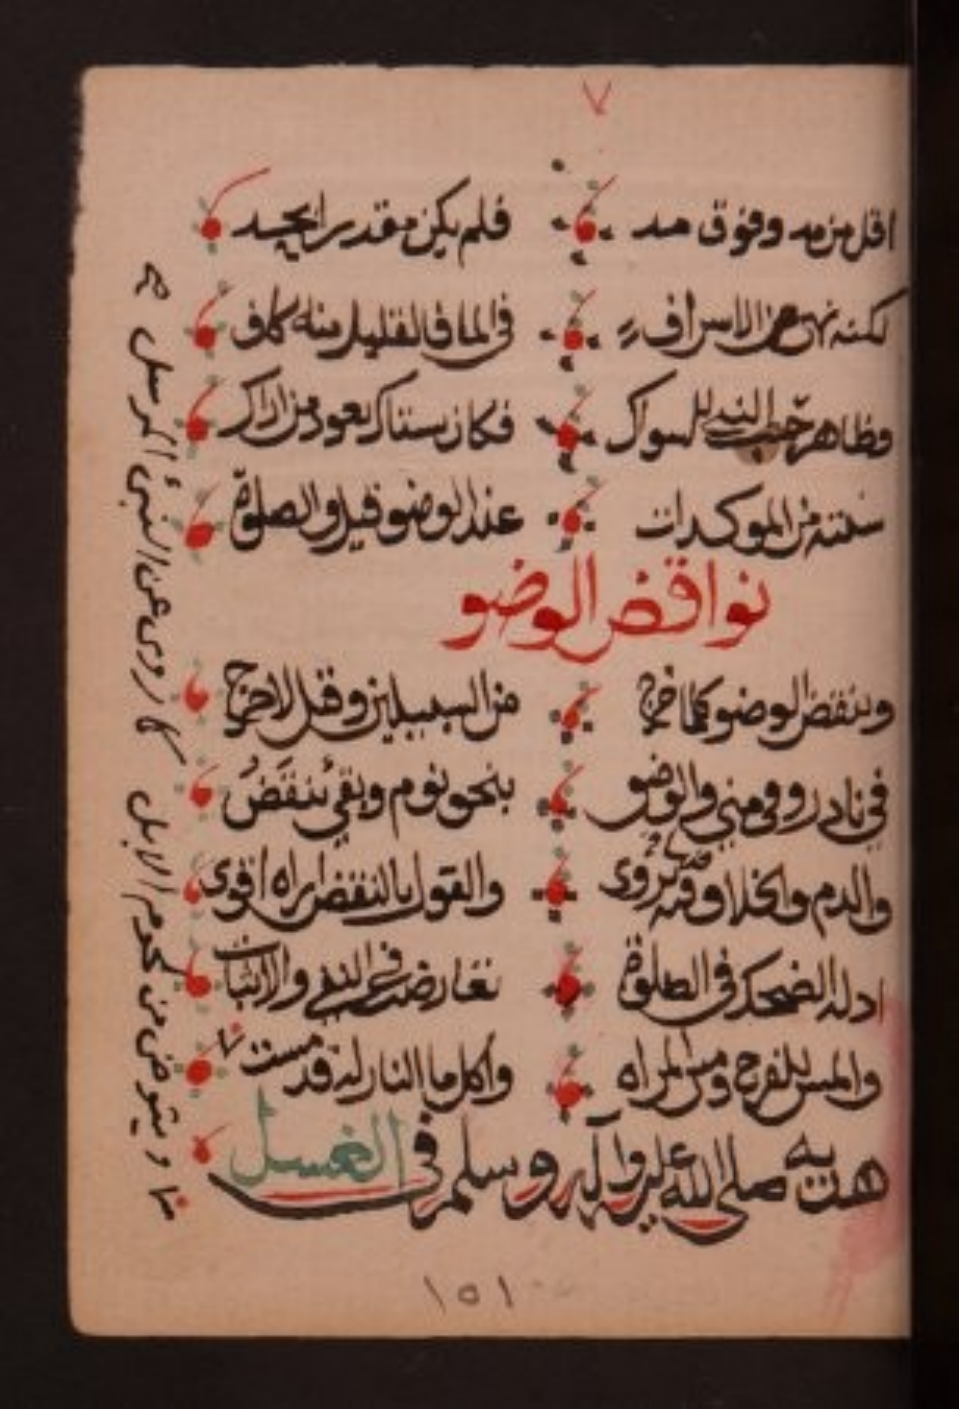 ٧
اقل من مد وفوق مد فلم يكن مقدرا بحد
لكنه نهى عن الاسراف في الما فالقليل منه كاف
وظاهر حب النبي للسواك فكان يستاك بعود من اراك
سنته من الموكدات عند الوضو قيل والصلوة
نواقض الوضو
وينقض الوضو كلما خرج من السبيلين وقل لا حرج
في نادر روو في مني والوضو بنحو نوم وبقي ينقض
والدم والخلاف فيه روى والقول بالنقض اراه اقوى
ادلة الضحك في الصلوة تعارضت في النفي والاثبات
والمس للفرج ومس المراه واكل ما النار له قد مست
هديه صلى الله عليه وآله وسلم في الغسل
ويتوضى من لحوم الابل كما روى عن النبي المرسل
١٥١